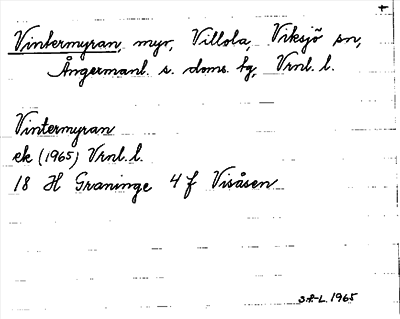 Vintermyran, myr, Villola, Viksjö sn,
Ångermanl. s. doms. hg, Vrnl. l.
Vintermyran
ek (1965) Vrnl. l.
18 H Graninge 4 f Visåsen
1965